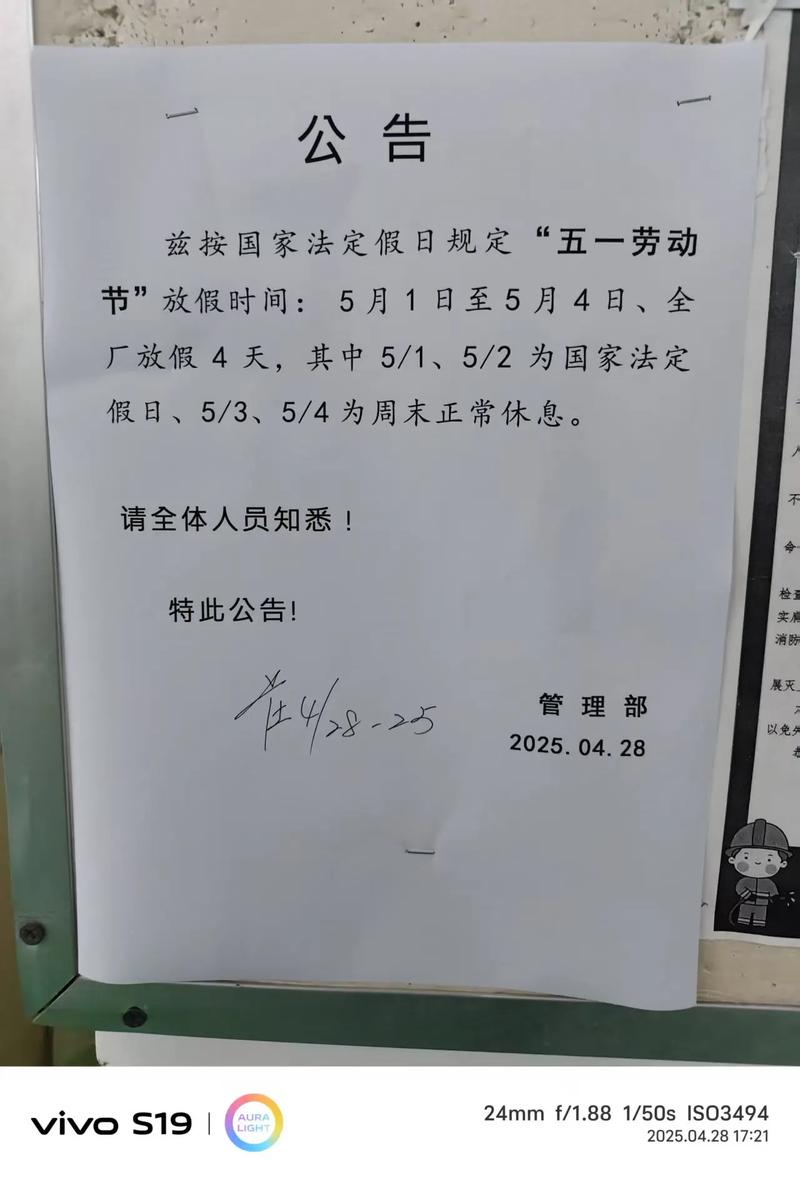 公告
兹按国家法定假日规定“五一劳动
节”放假时间：5月1日至5月4日、全
厂放假4天，其中5/1、5/2为国家法定
假日、5/3、5/4为周末正常休息。
请全体人员知悉！
特此公告!
4/28-25
管理部
2025.04.28
不
命
检查
实施
消防
展灭
以免失
vivo S19
AURA
LIGHT
24mm f/1.88 1/50s ISO3494
2025.04.28 17:21